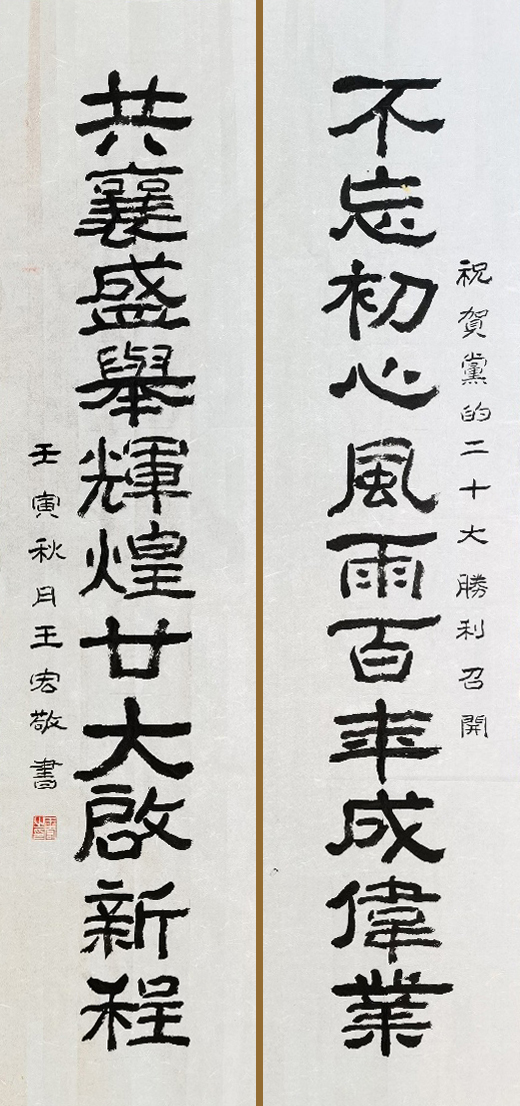 祝賀黨的二十大勝利召開
不忘初心風雨百年成偉業
共襄盛舉輝煌廿大啟新程
壬寅秋月王宏敬書